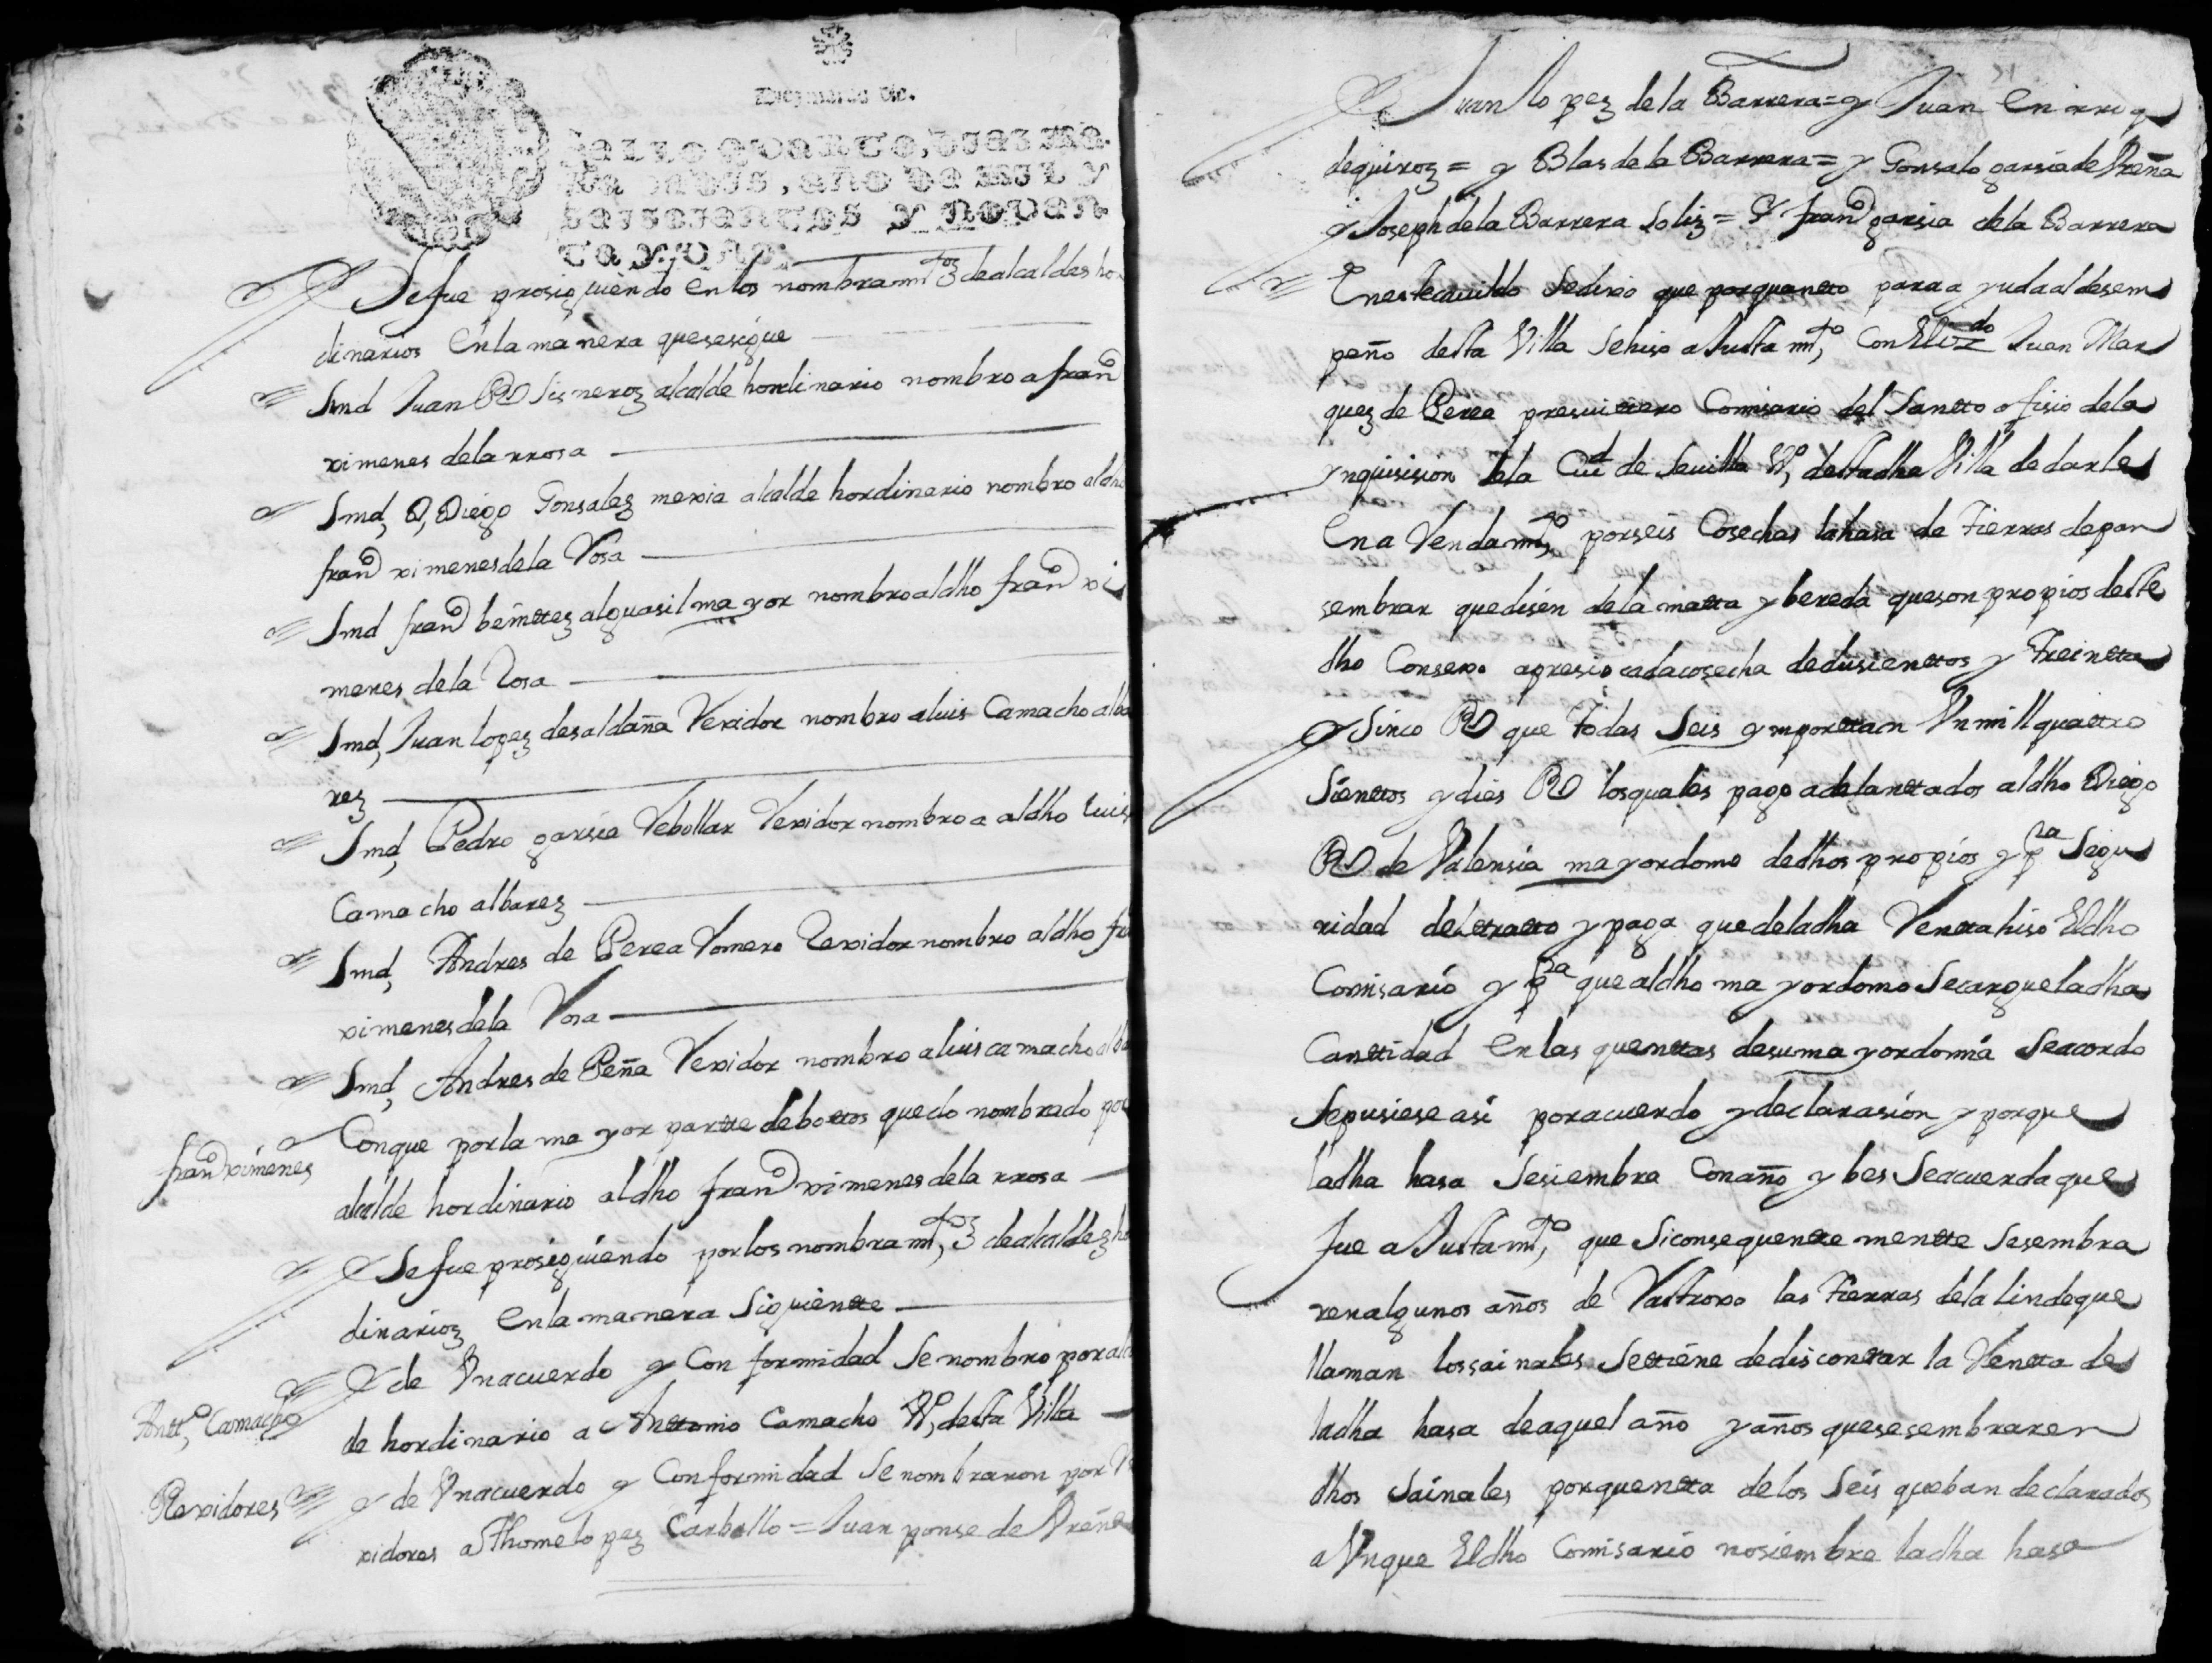 Diez maravedis.
SELLO QVARTO, DIEZ MA-
RAVEDIS, AÑO DE MIL Y
SEISCIENTOS Y NOVEN-
TA Y DOS.
Se fue prosiguiendo en los nombramtos de alcaldes ho
dinarios en la manera que se sigue
Smd Juan Rs Sisneroz alcalde hordinario nombro a franco
ximenes de la rrosa
Smd, D, Diego Gonsalez mexia alcalde hordinario nombro al dho
franco ximenes de la Rosa
Smd franco benittez alguasil mayor nombro al dho franco xi
menes de la Rosa
Smd, Juan lopez de saldaña Rexidor nombro a luis Camacho alba
rez
Smd, Pedro garsia Rebollar Rexidor nombro a aldho luis
Camacho albarez
Smd, Andres de Perea Romero Rexidor nombro aldho fra
ximenes de la Rosa
Smd, Andres de Peña Rexidor nombro a luis camacho alba
Con que por la mayor partte de bottos quedo nombrado por
franco ximenes
alcalde hordinario al dho franco ximenes de la rrosa
Y Se fue prosiguiendo por los nombramtos de alcaldez ho
dinarioz en la manera Siguientte
Y de Vn acuerdo y Conformidad Se nombro por alca
Antto, Camacho
de hordinario a Anttonio Camacho Vo, desta Villa
Rexidores
y de Vn acuerdo y Conformidad Se nombraron por Re
xidores a Thome lopez Carballo = Juan ponse de Ureña
Juan lopez de la Barrera = y Juan Enrriq
de quiroz = y Blas de la Barrera = y Gonsalo garsia de Ureña
y Joseph de la Barrera Soliz = Y franco garsia de la Barrera
En este cauildo Se dixo que por quantto para ayuda al desem
peño desta Villa Se hiso aJustamto, Con El Lizdo Juan Mar
quez de Perea presuittero Comisario del Santto ofisio de la
ynquisision de la Ciud de Seuilla Vo, desta dha Villa de darle
En aRendamto, por seis Cosechas la hasa de Tierras de pan
sembrar que disen de la matta y bereda que son propios deste
dho Consexo a presio cada cosecha de dusienttos y Treintta
y Sinco Rs que Todas Seis ymporttan Vn mill quattro
Sienttos y dies Rs los quales pago adelanttados al dho Diego
Rs de Valensia mayordomo de dhos propios y pa Segu
ridad del tratto y paga que de la dha Rentta hiso El dho
Comisario y pa que al dho mayordomo Se cargue la dha
Canttidad En las quenttas de su mayordomia Se acordo
Se pusiese asi por acuerdo y declarasion y porque
la dha hasa Se siembra Con año y bes Se acuerda que
fue aJustamto, que Si consequentte mentte Se sembra
ren algunos años de Rastroxo las Tierras de la linde que
llaman los sainales Se ttiene de discontar la Rentta de
la dha hasa de aquel año y años que se sembraren
dhos Sainales por quentta de los Seis que ban declarados
aVnque El dho Comisario no siembre la dha hasa